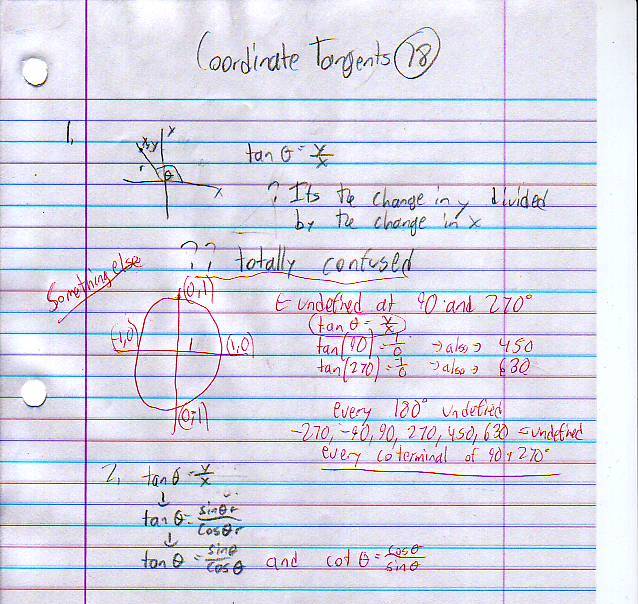 Coordinate Tangents 78
1.
y
x,y
r
θ
x
tan θ = y/x
? Its the change in y divided
by the change in x
?? totally confused
Something else
(0,1)
(-1,0)
1
(1,0)
(0,-1)
← undefined at 90 and 270°
(tan θ = y/x)
tan(90) = 1/0 → also → 450
tan(270) = -1/0 → also → 630
every 180° undefined
-270, -90, 90, 270, 450, 630 ← undefined
every coterminal of 90 + 270°
2. tan θ = y/x
↓
tan θ = sinθr/cosθr
↓
tan θ = sinθ/cosθ and cot θ = cosθ/sinθ